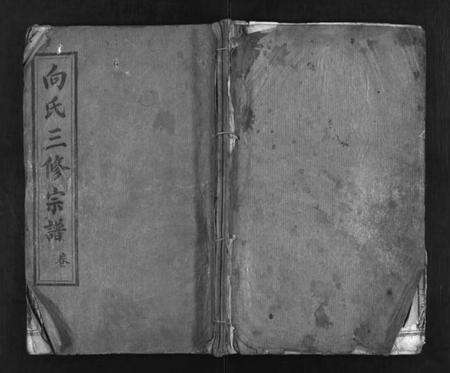 向氏三修宗譜
卷